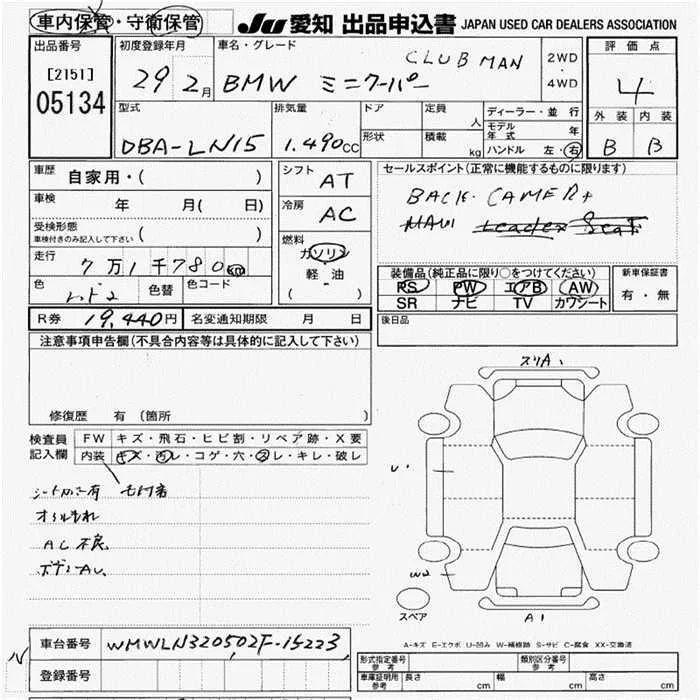 車内保管・守衛保管 JU 愛知 出品申込書 JAPAN USED CAR DEALERS ASSOCIATION
出品番号 初度登録年月 車名・グレード 評価点
[2151] 29 2月 BMW ミニクーパー CLUB MAN 2WD・4WD 4
05134
型式 排気量 ドア 定員 人 ディーラー・並行 外装 内装
形状 積載 kg モデル年式 年
DBA-LN15 1.490cc ハンドル 左・右 B B
車歴 自家用・( ) シフト AT セールスポイント(正常に機能するものに限ります)
車検 年 月( 日) 冷房 AC BACK. CAMER
受検形態 ( )
車検付きのみ記入して下さい
燃料 ガソリン
走行 7万1千780km 軽・油 装備品(純正品に限り○をつけてください) 新車保証書
色 色替 色コード ( ) PS PW エアB AW 有・無
SR ナビ TV カワシート
R券 19,440円 名変通知期限 月 日 後日品
注意事項申告欄(不具合内容等は具体的に記入して下さい)
スリA1
修復歴 有 (箇所 )
検査員記入欄 FW キズ・飛石・ヒビ割・リペア跡・X要
内装 キズ・汚レ・コゲ・穴・スレ・キレ・破レ
U1
オイルもれ
AC不良
W2
スペア A1
A-キズ E-エクボ U-凹み W-補修跡 S-サビ C-腐食 XX-交換済
車台番号 WMWLN320502F-15223
登録番号
形式指定番号参考 類別区分番号参考
車庫証明用参考 長さ cm 幅 cm 高さ cm